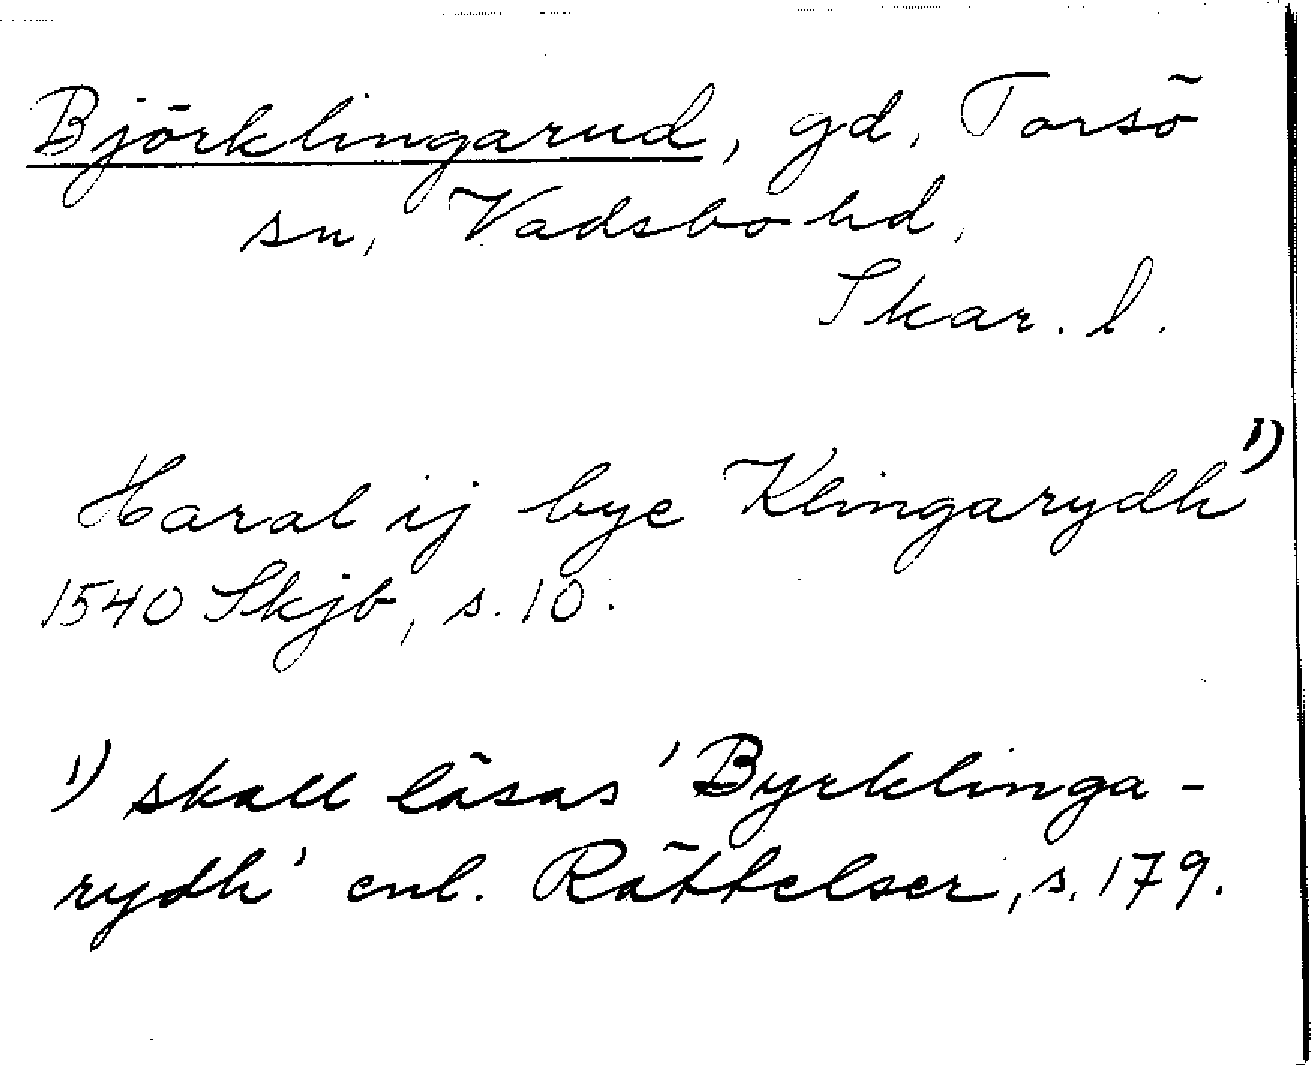 Björklingarud, gd, Torsö
sn, Vadsbo hd,
Skar. l.
Haral ij bye Klingarydh 1)
1540 Skjb, s. 10.
1) skall läsas 'Byrklinga-
rydh' enl. Rättelser, s. 179.